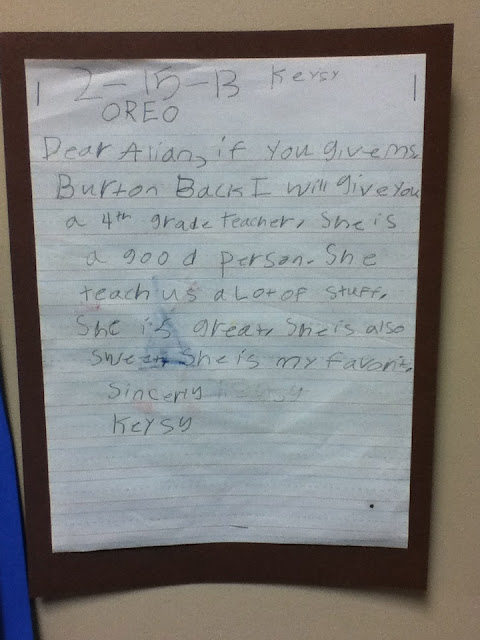 2-15-13 Keysy
OREO
Dear Alian, if you give ms.
Burton Back I will give you
a 4th grade teacher. She is
a good person. She
teach us a Lot of stuff.
She is great. She is also
sweet. She is my favorit.
Sincerly Keysy
Keysy